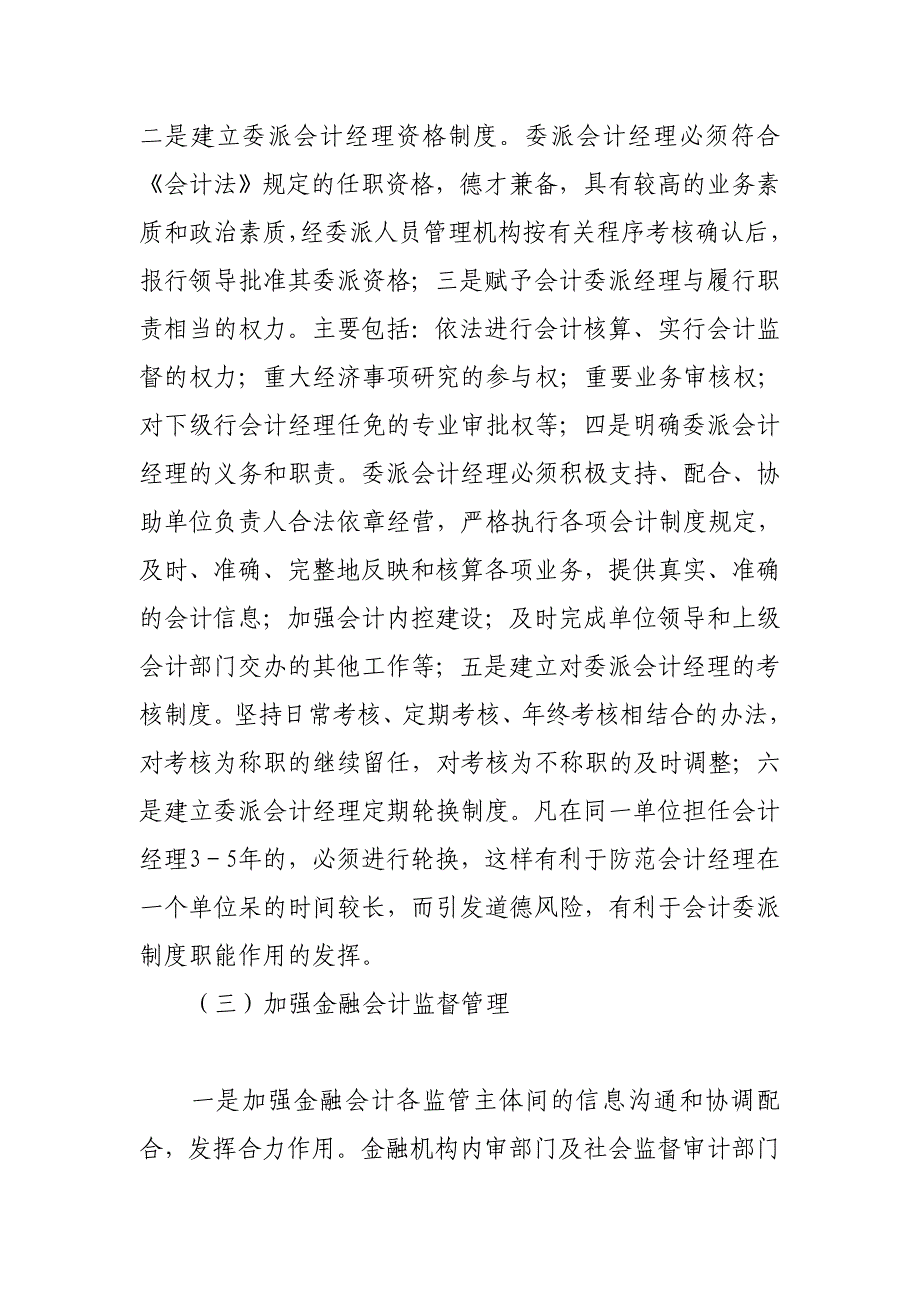 二是建立委派会计经理资格制度。委派会计经理必须符合
《会计法》规定的任职资格，德才兼备，具有较高的业务素
质和政治素质，经委派人员管理机构按有关程序考核确认后，
报行领导批准其委派资格；三是赋予会计委派经理与履行职
责相当的权力。主要包括：依法进行会计核算、实行会计监
督的权力；重大经济事项研究的参与权；重要业务审核权；
对下级行会计经理任免的专业审批权等；四是明确委派会计
经理的义务和职责。委派会计经理必须积极支持、配合、协
助单位负责人合法依章经营，严格执行各项会计制度规定，
及时、准确、完整地反映和核算各项业务，提供真实、准确
的会计信息；加强会计内控建设；及时完成单位领导和上级
会计部门交办的其他工作等；五是建立对委派会计经理的考
核制度。坚持日常考核、定期考核、年终考核相结合的办法，
对考核为称职的继续留任，对考核为不称职的及时调整；六
是建立委派会计经理定期轮换制度。凡在同一单位担任会计
经理3－5年的，必须进行轮换，这样有利于防范会计经理在
一个单位呆的时间较长，而引发道德风险，有利于会计委派
制度职能作用的发挥。
（三）加强金融会计监督管理
一是加强金融会计各监管主体间的信息沟通和协调配
合，发挥合力作用。金融机构内审部门及社会监督审计部门